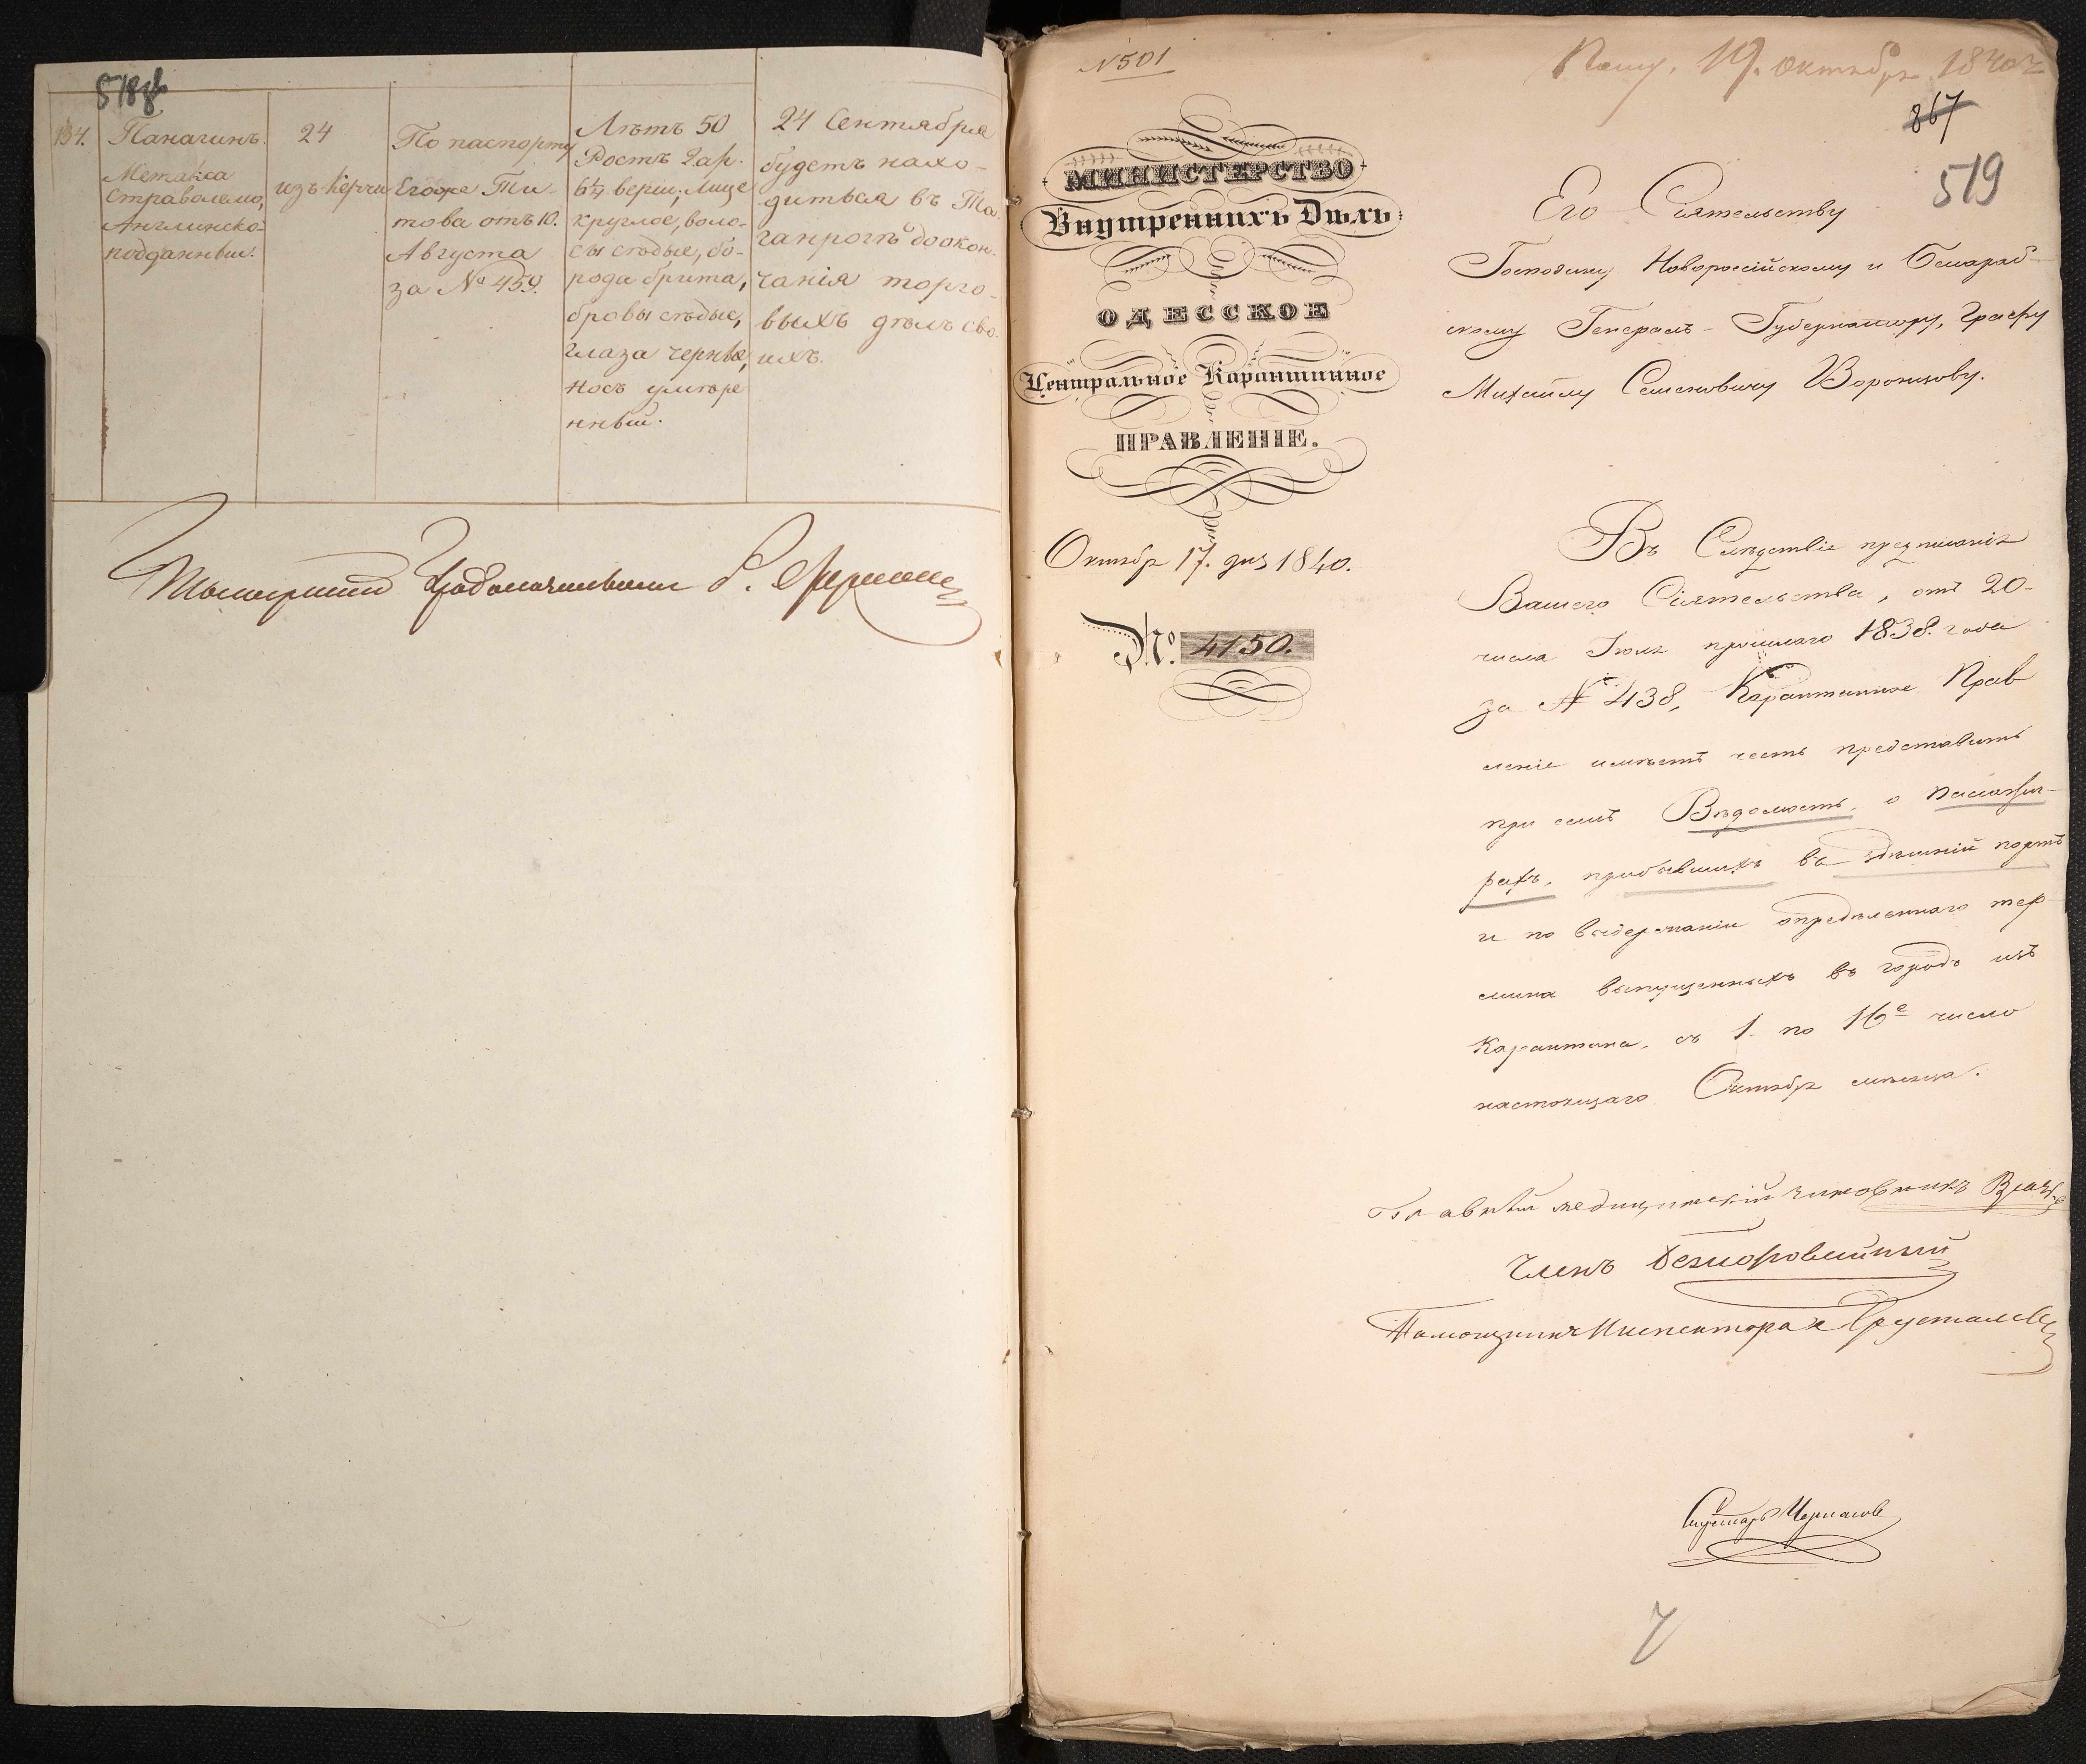 518об
134.
Панагинъ
Метакса
Страволемо,
Англинско-
подданный.
24
изъ Керчи
По паспорту
Егоже Ти-
това отъ 10.
Августа
за № 459.
Лѣтъ 50
Ростъ 2 ар.
6½ верш; лице
круглое, воло-
сы сѣдые, бо-
рода брита,
бровы сѣдые,
глаза черные,
носъ умѣре
нный.
24 Сентября
будетъ нахо-
диться въ Та-
ганрогѣ до окон-
чанія торго-
выхъ дѣлъ сво-
ихъ.
Градоначальника
№ 501
Получ. 19. октября 1840 г
867
519
МИНИСТЕРСТВО
Внутреннихъ Дѣлъ
ОДЕССКОЕ
Центральное Карантинное
ПРАВЛЕНІЕ.
Октябр 17. дня 1840.
№. 4150.
Его Сіятельству
Господину Новороссійскому и Бессараб-
скому Генералъ-Губернатору, Графу
Михаилу Семеновичу Воронцову.
Въ Слѣдствіе предписанія
Вашего Сіятельства, отъ 20-
числа Іюля прошлаго 1838. года
за № 438, Карантинное Прав
леніе имѣетъ честь представить
при семъ Вѣдомость о пассажи-
рахъ, прибывшихъ въ здѣшній портъ
и по выдержаніи опредѣленнаго тер
мина выпущенныхъ въ городъ изъ
Карантина, съ 1 по 16е число
настоящаго Октября мѣсяца.
Главный медицинскій чиновникъ
Членъ
Помощникъ Инспектора Хрусталевъ
Секретарь Чернасовъ